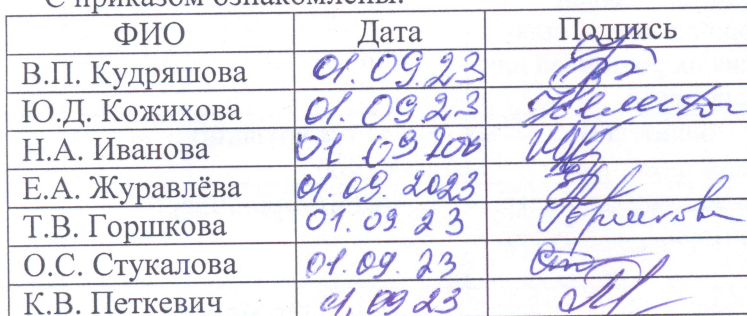 С приказом ознакомлены:
ФИО Дата Подпись
В.П. Кудряшова 01.09.23
Ю.Д. Кожихова 01.09 23
Н.А. Иванова 01 09
Е.А. Журавлёва 01.09.2023
Т.В. Горшкова 01.09 23 Горшкова
О.С. Стукалова 01.09.23
К.В. Петкевич 01.09 23